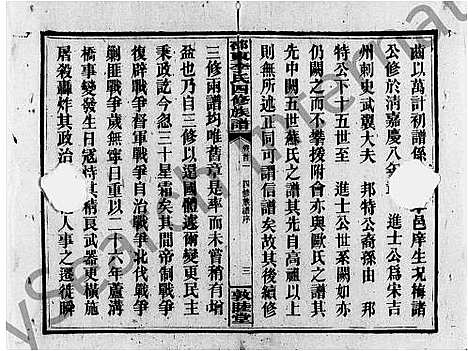 齒以萬計初譜係 邑庠生羌梅諸
公修於清嘉慶八年 進士公爲宋吉
州刺史武翼大夫 邦特公裔孫由 邦
特公下十五世至 進士公世系闕如亦
仍闕之而不攀援附會亦與歐氏之譜其
先中闕五世蘇氏之譜其先自高祖以上
則無所述正同可謂信譜矣故其後續修
邵東李氏四修族譜 卷首一 四修族譜序 三 敦睦堂
三修兩譜均唯舊章是率而未曾稍有增
益也乃自三修以還國體遞爾變更民主
秉政迄今忽三十星霜矣其間帝制戰爭
復辟戰爭督軍戰爭自治戰爭北伐戰爭
剿匪戰爭歲無寧日重以二十六年蘆溝
橋事變發生日寇恃其精良武器更橫施
屠殺轟炸其政治 人事之遷徙瞬